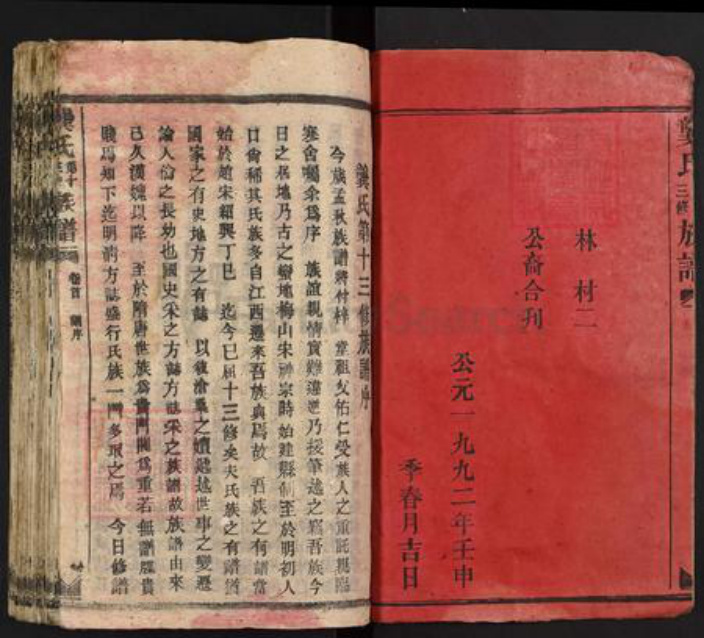 龔氏三修族譜
林村二
公裔合刊
公元一九九二年壬申
季春月吉日
龔氏第十三修族譜序
今歲孟秋族譜將付梓 堂祖父佑仁受族人之重託親臨
寒舍囑余為序 族誼親情實難違逆乃援筆述之竊吾族今
日之居地乃古之蠻地梅山宋神宗時始建縣制至於明初人
口尚稀其氏族多自江西遷來吾族與焉故 吾族之有譜當
始於趙宋紹興丁巳 迄今已屆十三修矣夫氏族之有譜猶
國家之有史地方之有誌 以敘滄桑之嬗越世事之變遷
論人倫之長幼也國史采之方誌方誌采之族譜故族譜由來
已久漢魏以降 至於隋唐世族為貴門閥為重若無譜牒貴
賤焉知下迄明清方誌盛行氏族一門多取之焉 今日修譜
族譜
卷首